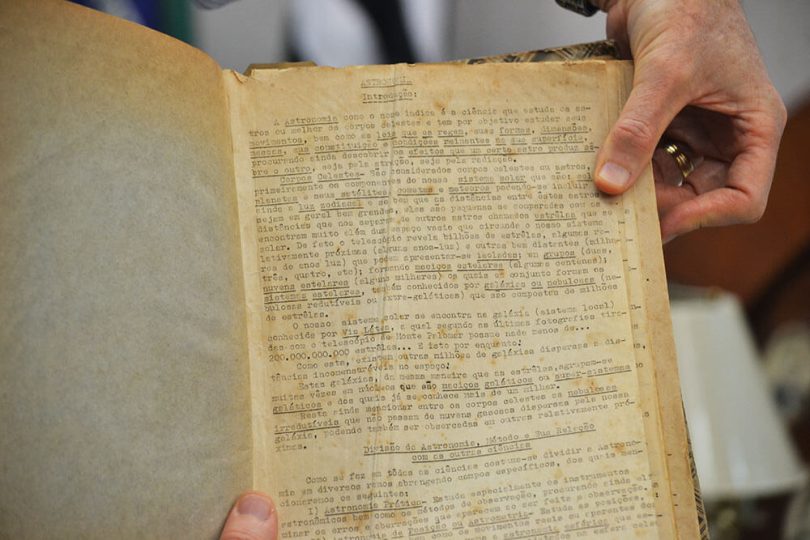 ASTRONOMIA
Introdução:
A Astronomia como o nome indica é a ciência que estuda os as-
tros ou melhor os corpos celestes e tem por objetivo estudar seus
movimentos, bem como as leis que os regem, suas formas, dimensões,
massas, sua constituição e condições reinantes na sua superfície,
procurando ainda descobrir os efeitos que um certo astro produz sô-
bre o outro, seja pela atração, seja pela radiação.
Corpos Celestes- São considerados corpos celestes ou astros,
primeiramente os componentes do nosso sistema solar que são:
planetas e seus satélites, cometas e meteoros podendo-se incluir
ainda a luz zodiacal e se bem que as distâncias entre êstes astros
sejam em geral bem grandes, elas são pequenas se comparadas com as
distâncias que nos separam de outros astros chamados estrêlas que se
encontram muito além dum espaço vasio que circunda o nosso sistema
solar. De fato o telescópio revela bilhões de estrêlas, algumas re-
lativamente próximas (alguns anos-luz) e outras bem distantes (milha-
res de anos luz) que podem apresentar-se isoladas; em grupos (duas,
três, quatro, etc); formando maciços estelares (algumas centenas),
nuvens estelares (alguns milhares) os quais em conjunto formam os
sistemas estelares, também conhecidos por galáxias ou nebulosas (ne-
bulosas redutíveis ou extra-galáticas) que são compostas de milhões
de estrêlas.
O nosso sistema solar se encontra na galáxia (sistema local)
conhecida por Via Látea, a qual segundo as últimas fotografias tira-
das com o telescópio de Monte Palomar possue nada menos de...
200.000.000.000 estrêlas... E isto por enquanto!
Como esta, existem outras milhões de galáxias dispersas a dis-
tâncias incomensuráveis no espaço!
Estas galáxias, da mesma maneira que as estrêlas, agrupam-se
muitas vêzes em núcleos que são maciços galáticos ou super-sistemas
galáticos e dos quais já se conhece mais de um milhar.
Resta ainda mencionar entre os corpos celestes as nebulosas
irredutíveis que não passam de nuvens gasosas dispersas pela nossa
galáxia, podendo também ser observadas em outras relativamente pró-
ximas.
Divisão da Astronomia, Método e Sua Relação
com as outras ciências
Como se fez em tôdas as ciências costuma-se dividir a Astrono-
mia em diversos ramos abrangendo campos específicos, dos quais men-
cionaremos os seguintes:
1) Astronomia Prática- Estuda especialmente os instrumentos
astronômicos bem como os métodos de observação, procurando ainda
minar os erros e aberrações que aparecem ao ser feita a observação.
de Posição ou Astrometria- Estuda as posições,
como os movimentos reais ou aparentes dos
astronomia esférica que
na esfera celeste